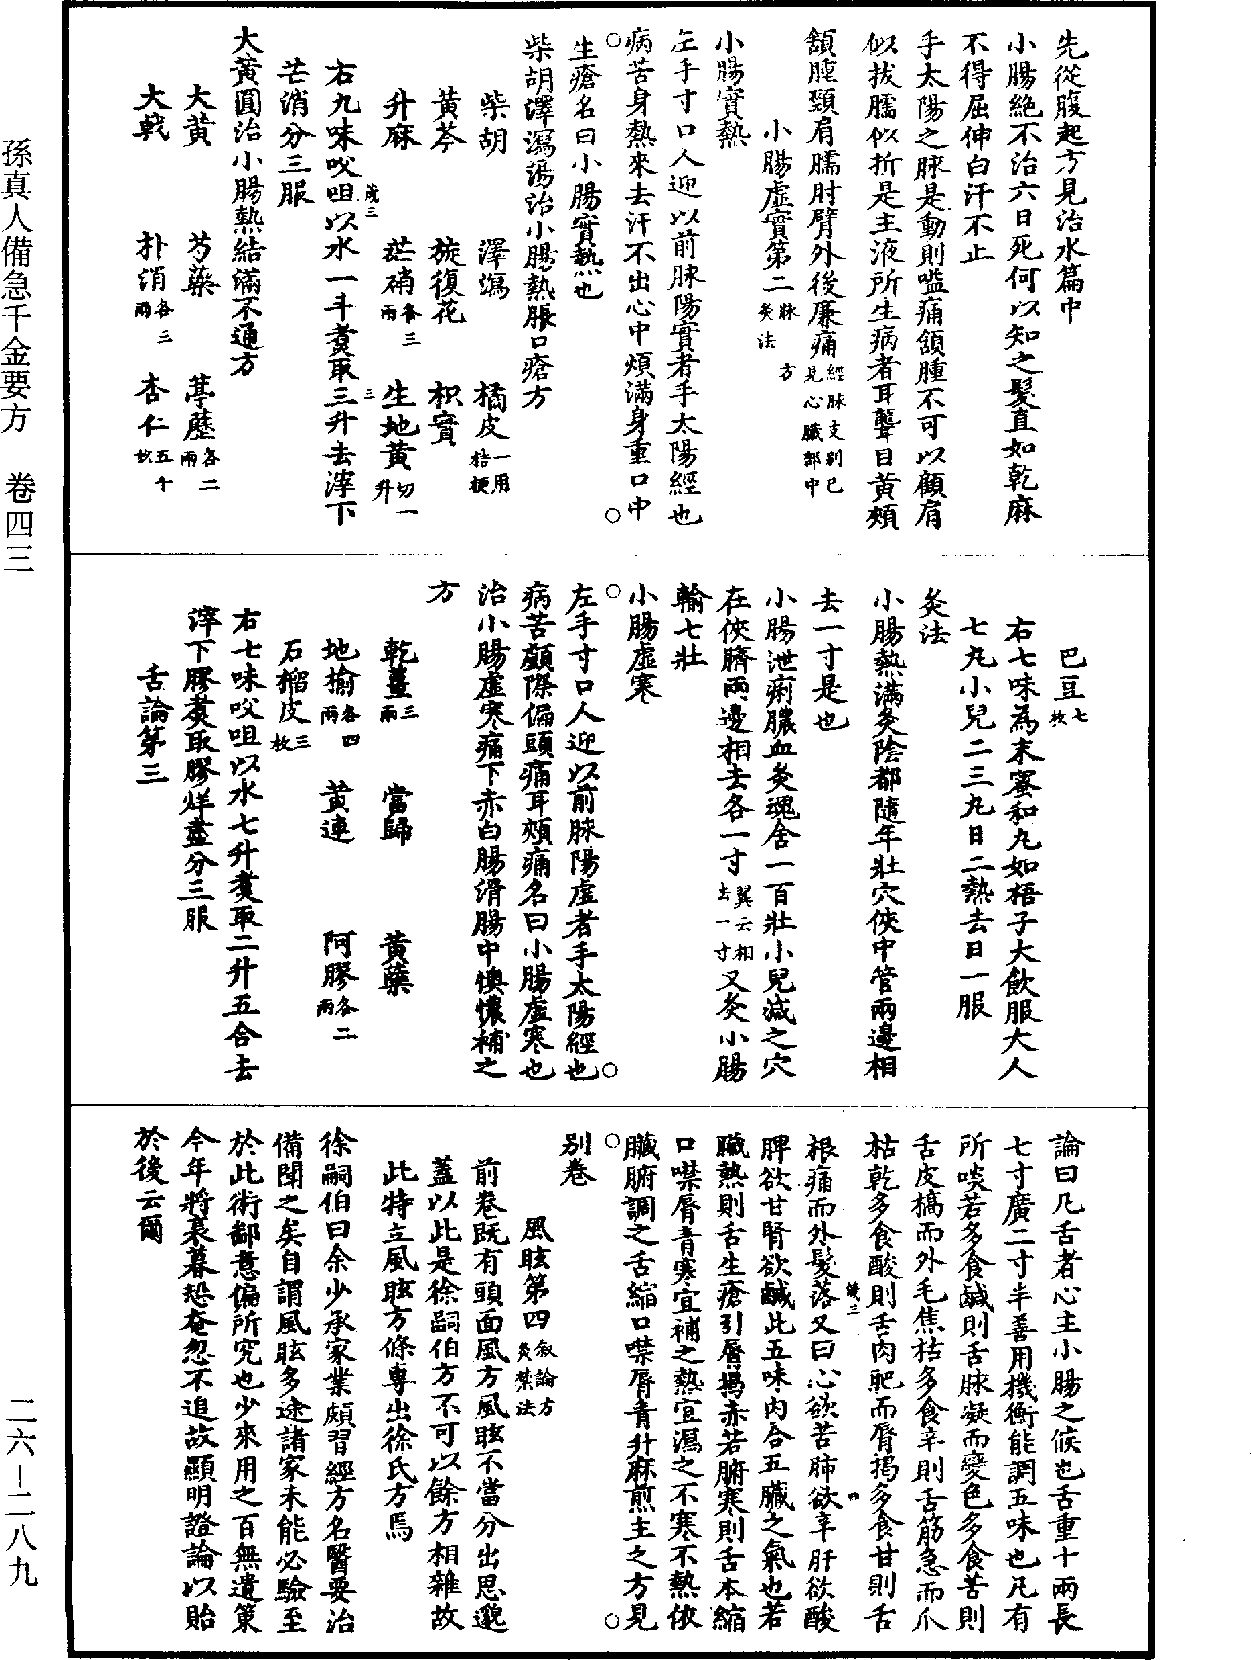 先從腹起方見治水篇中
小腸絕不治六日死何以知之髮直如乾麻
不得屈伸白汗不止
手太陽之脉是動則嗌痛頷腫不可以顧肩
似拔臑似折是主液所生病者耳聾目黃頰
頷腫頸肩臑肘臂外後廉痛經脉支別已見心臟部中
小腸虛實第二脉方灸法
小腸實熱
左手寸口人迎以前脉陽實者手太陽經也
病苦身熱來去汗不出心中煩滿身重口中
生瘡名曰小腸實熱也
柴胡澤瀉湯治小腸熱脹口瘡方
柴胡 澤瀉 橘皮一用桔梗
黃芩 旋復花 枳實
升麻 芒硝各三兩 生地黃切一升
右九味㕮咀以水一斗煑取三升去滓下
芒消分三服
大黃圓治小腸熱結滿不通方
大黃 芍藥 葶藶各二兩
大戟 朴消各三兩 杏仁五十枚
巴豆七枚
右七味為末蜜和丸如梧子大飲服大人
七丸小兒二三丸日二熱去日一服
灸法
小腸熱滿灸陰都隨年壯穴俠中管兩邊相
去一寸是也
小腸泄痢膿血灸魂舍一百壯小兒減之穴
在俠臍兩邊相去各一寸翼云相去一寸又灸小腸
輸七壯
小腸虛寒
左手寸口人迎以前脉陽虛者手太陽經也
病苦顱際偏頭痛耳頰痛名曰小腸虛寒也
治小腸虛寒痛下赤白腸滑腸中懊憹補之
方
乾薑三兩 當歸 黃蘗
地榆各四兩 黃連 阿膠各二兩
石榴皮三枚
右七味㕮咀以水七升煑取二升五合去
滓下膠煑取膠烊盡分三服
舌論第三
論曰凡舌者心主小腸之候也舌重十兩長
七寸廣二寸半善用機衡能調五味也凡有
所啖若多食鹹則舌脉凝而變色多食苦則
舌皮槁而外毛焦枯多食辛則舌筋急而爪
枯乾多食酸則舌肉肥而脣揭多食甘則舌
根痛而外髮落又曰心欲苦肺欲辛肝欲酸
脾欲甘腎欲鹹此五味內合五臟之氣也若
臟熱則舌生瘡引脣揭赤若腑寒則舌本縮
口噤脣青寒宜補之熱宜瀉之不寒不熱依
臟腑調之舌縮口噤脣青升麻煎主之方見
別卷
風眩第四叙論方灸禁法
前卷既有頭面風方風眩不當分出思邈
蓋以此是徐嗣伯方不可以餘方相雜故
此特立風眩方條專出徐氏方焉
徐嗣伯曰余少承家業頗習經方名醫要治
備聞之矣自謂風眩多途諸家未能必驗至
於此術鄙意偏所究也少來用之百無遺策
今年將衰暮恐奄忽不追故顯明證論以貽
於後云爾
孫真人備急千金要方 卷四三
二六－二八九